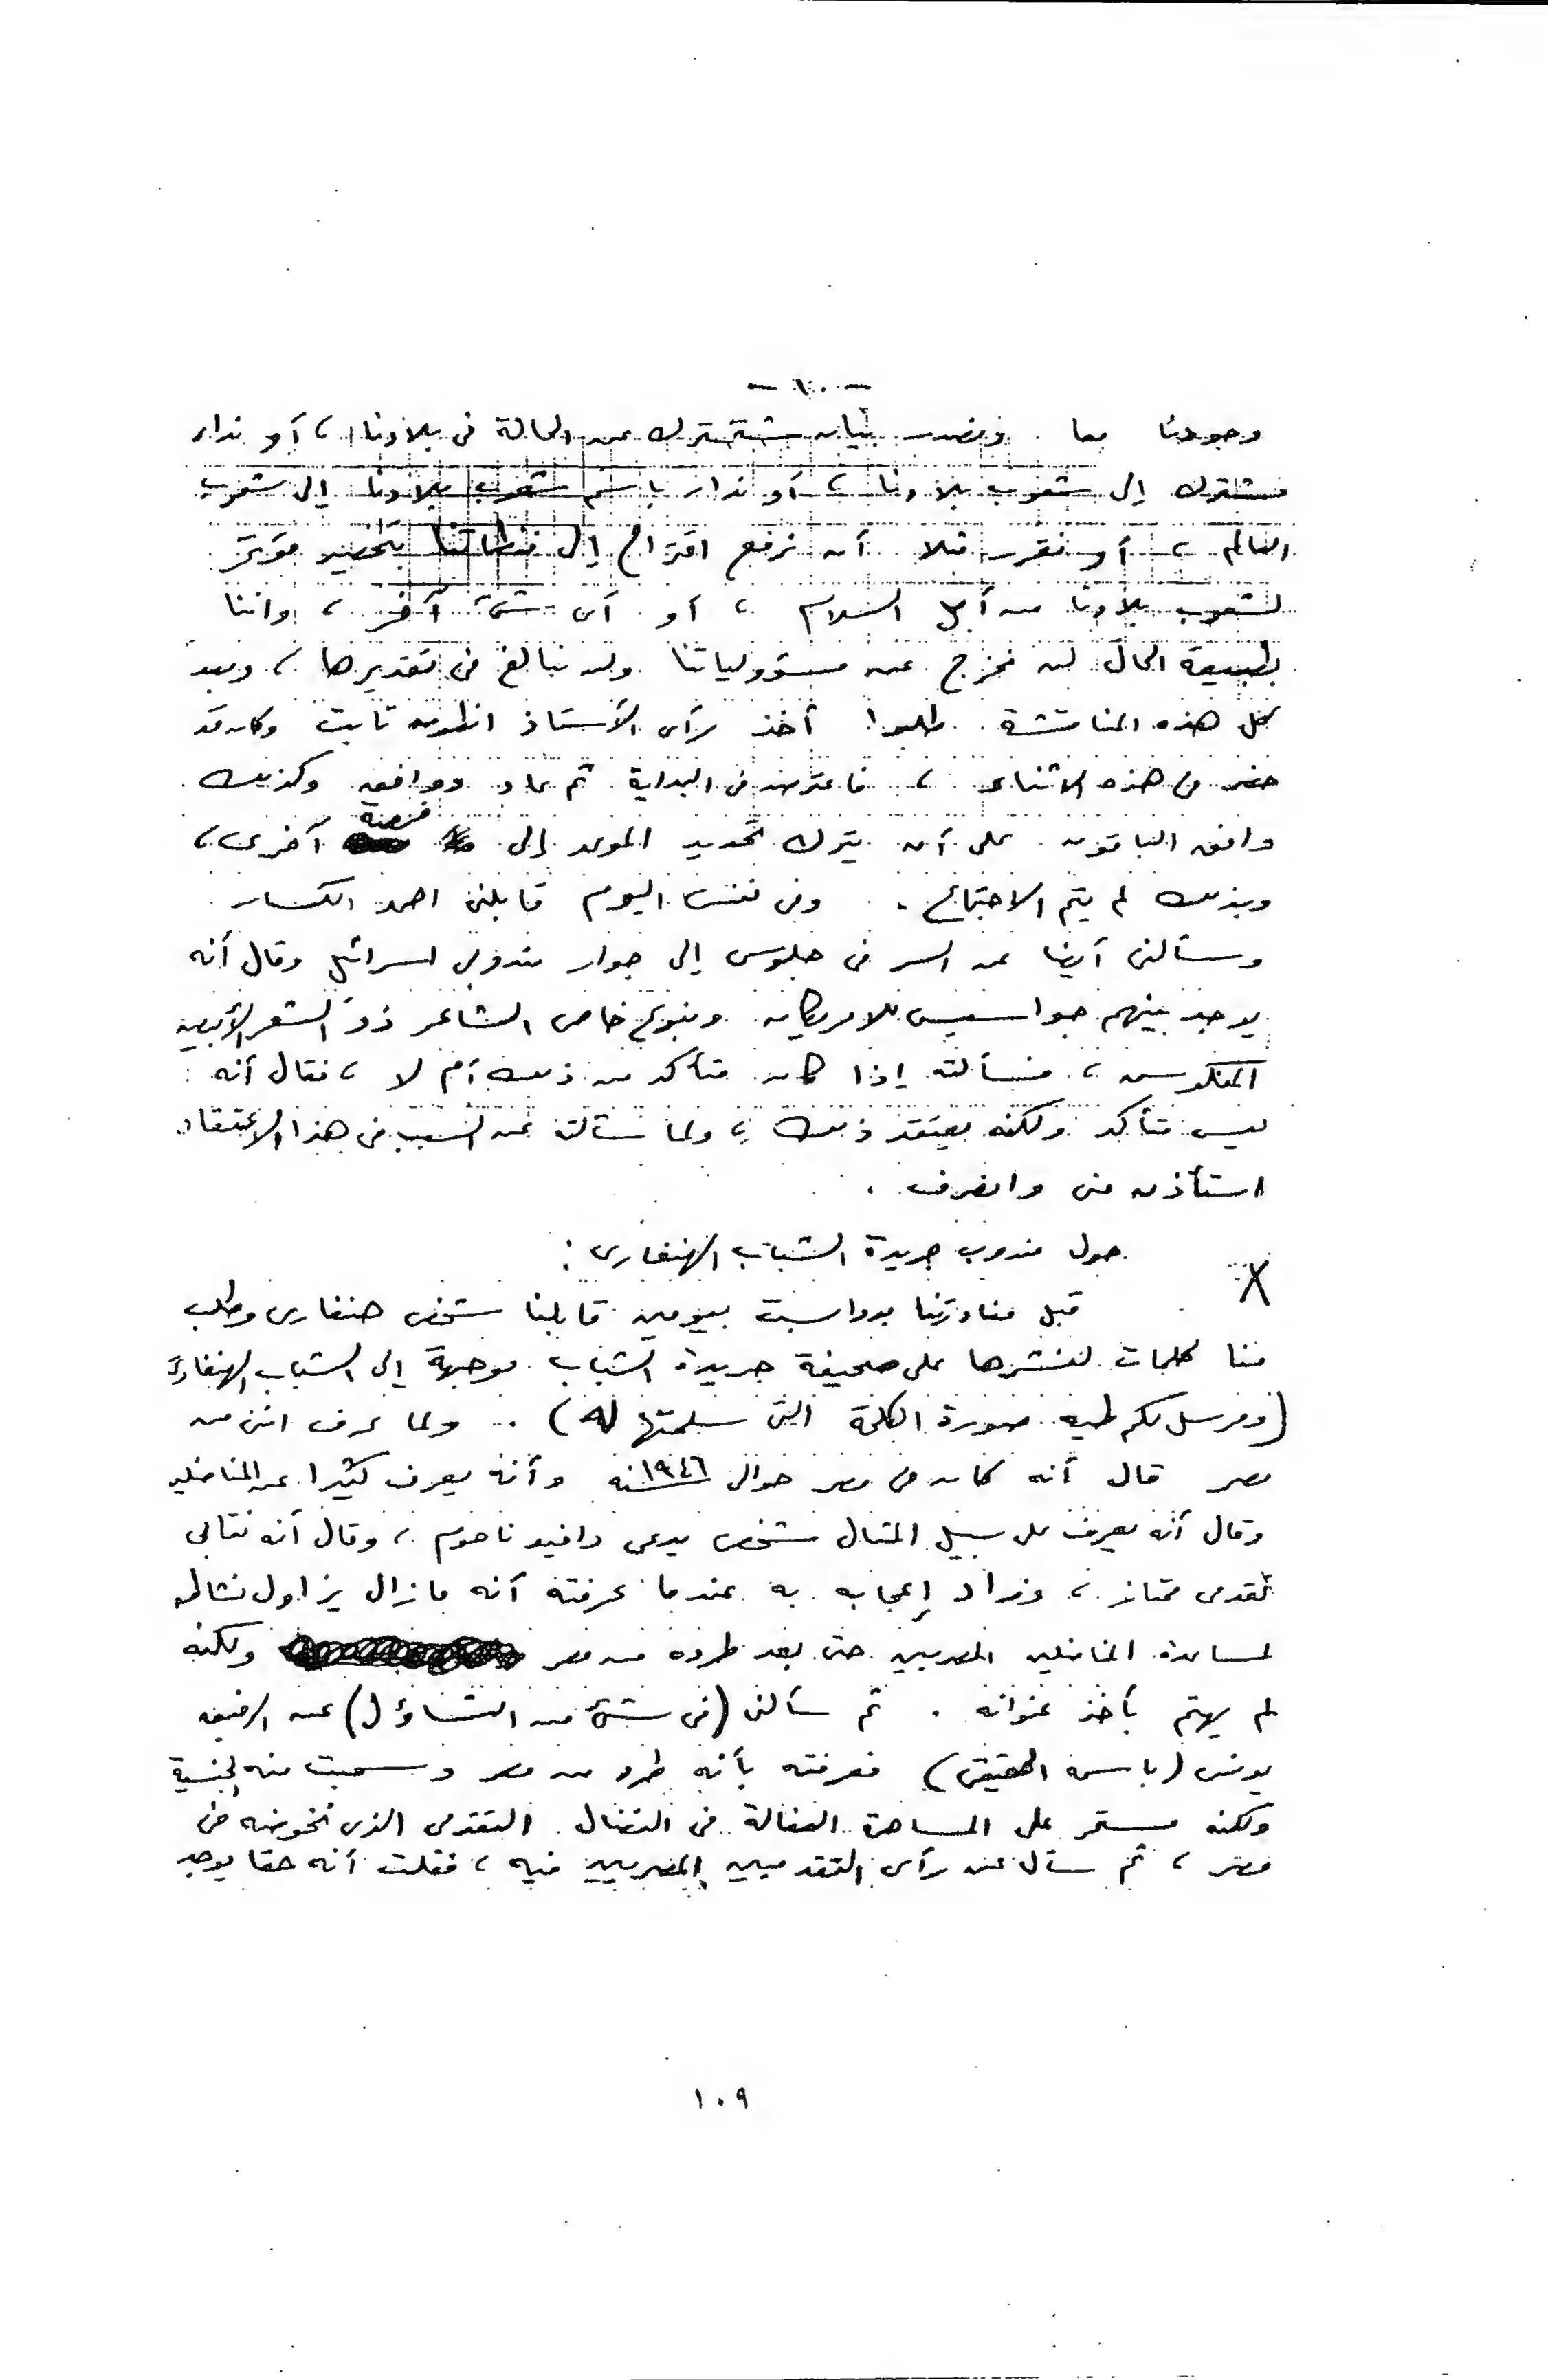 - ١٠ -
وجودنا معا ونصدر بيان مشترك عن الحالة فى بلادنا ، أو نداء
مشترك إلى شعوب بلادنا ، أو نداء باسم شعوب بلادنا إلى شعوب
العالم ، أو نقرر مثلا أن نرفع اقتراح إلى منظماتنا بتحضير مؤتمر
لشعوب بلادنا من أجل السلام ، أو أى شئ آخر ، واننا
بطبيعة الحال لن نخرج عن مسؤولياتنا ولن نبالغ فى تقديرها ، وبعد
كل هذه المناقشة طلبوا أخذ رأى الأستاذ انطون ثابت وكان قد
حضر فى هذه الاثناء ، فاعترض فى البداية ثم عاد ووافق وكذلك
وافق الباقون على أن يترك تحديد الموعد إلى فرصة أخرى ،
وبذلك لم يتم الاجتماع . وفى نفس اليوم قابلنى احمد الكسار
وسألنى أيضا عن السر فى جلوسى إلى جوار مندوبى اسرائيل وقال أنه
يوجد بينهم جواسيس للامريكان وبنوع خاص الشاعر ذو الشعر الأبيض
المنكوش ، فسألته إذا كان متأكد من ذلك أم لا ، فقال أنه
ليس متأكد ولكنه يعتقد ذلك ، ولما سألته عن السبب فى هذا الاعتقاد
استأذن منى وانصرف .
حول مندوب جريدة الشباب الهنغارى :
X
قبل مغادرتنا بودابست بيومين قابلنا شخص هنغارى وطلب
منا كلمات لنشرها على صحيفة جريدة الشباب موجهة إلى الشباب الهنغارى
(ومرسل لكم طيه صورة الكلمة التى سلمتها له) .. ولما عرف اننى من
مصر قال أنه كان فى مصر حوالى سنة ١٩٤٦ وأنه يعرف كثيرا عن المناضلين
وقال أنه يعرف على سبيل المثال شخص يدعى دافيد ناحوم ، وقال أنه نقابى
تقدمى ممتاز ، وزاد إعجابه به عندما عرفته أنه مازال يزاول نشاطه
لمساعدة المناضلين المصريين حتى بعد طرده من مصر ولكنه
لم يهتم بأخذ عنوانه . ثم سألنى (فى شئ من التساؤل) عن الرفيق
يونس (باسمه الحقيقى) فعرفته بأنه طرد من مصر وسحبت منه الجنسية
ولكنه مستمر على المساهمة الفعالة فى النضال التقدمى الذى نخوضه فى
مصر ، ثم سأل عن رأى التقدميين المصريين فيه ، فقلت أنه حقا يوجد
١٠٩